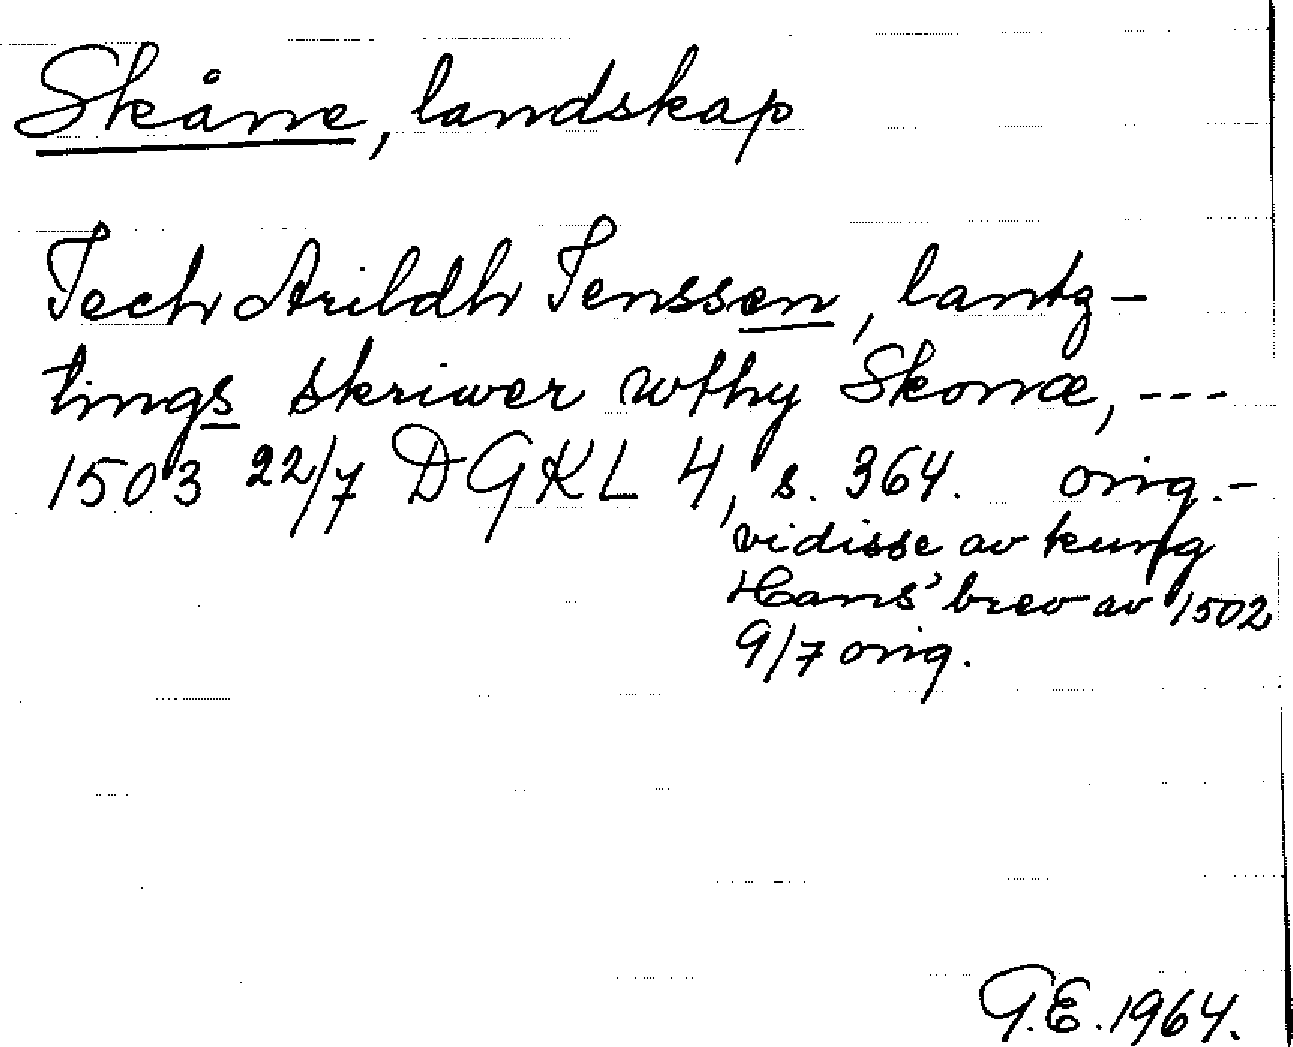 Skåne, landskap
Jech Arildh Jenssen, lantz-
tings skriwer wthy Skonæ, ---
1503 22/7 DGKL 4, s. 364. orig.-
vidisse av kung
Hans' brev av 1502
9/7 orig.
G.E. 1964.